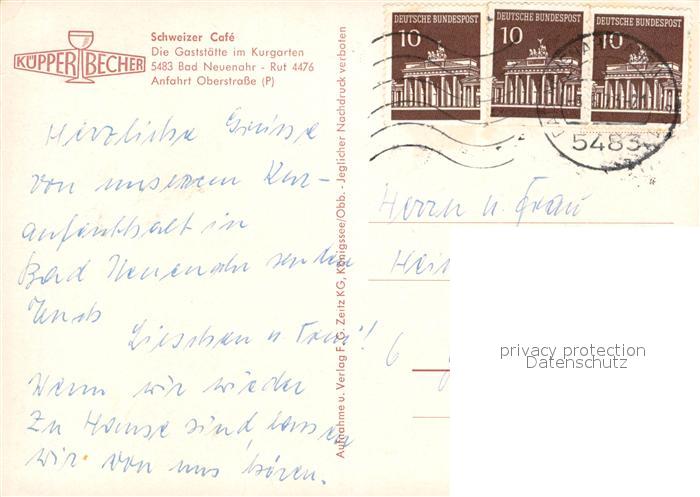 Schweizer Café
Die Gaststätte im Kurgarten
5483 Bad Neuenahr - Rut 4476
Anfahrt Oberstraße (P)
KÜPPER BECHER
DEUTSCHE BUNDESPOST
10
DEUTSCHE BUNDESPOST
10
DEUTSCHE BUNDESPOST
10
5483
Herzliche Grüsse
von unserem Kur-
aufenthalt in
Bad Neuenahr senden
Euch
Lieschen u.
Wenn wir wieder
zu Hause sind lassen
wir von uns hören.
Aufnahme u. Verlag F. G. Zeitz KG, Königssee/Obb. - Jeglicher Nachdruck verboten
Herrn u. Frau
Hei
6
privacy protection
Datenschutz